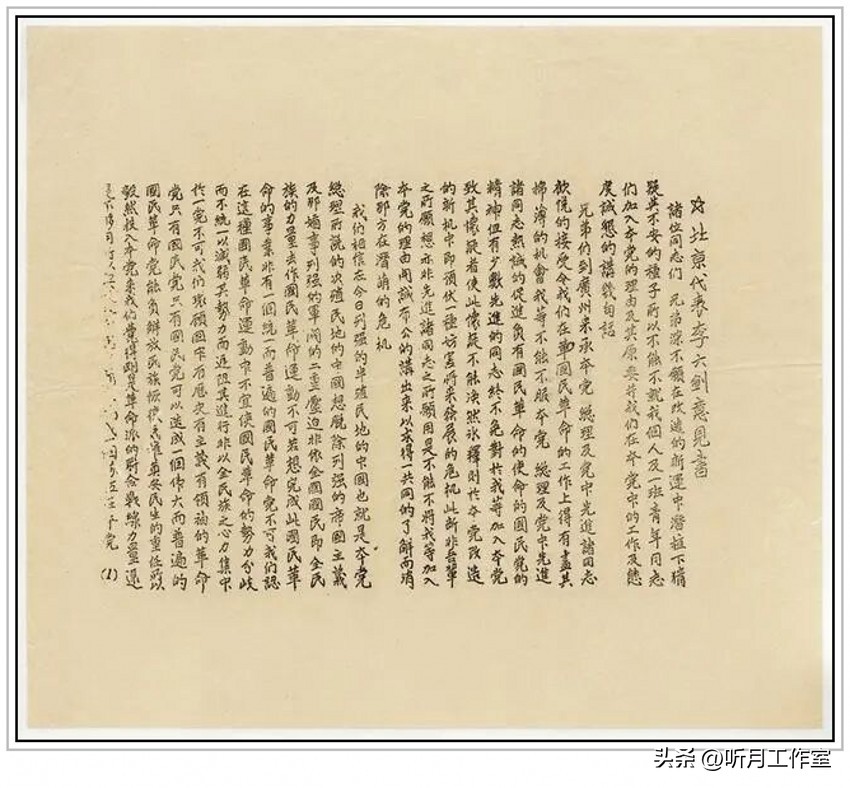 ☆北京代表李大釗意見書
諸位同志們 兄弟深不願在改造的新運中潛植下猜
疑與不安的種子所以不能不就我個人及一班青年同志
們加入本党的理由及其原委并我們在本党中的工作及態
度誠懇的講幾句話
兄弟們到廣州来承本党 總理及党中先進諸同志
欣悅的接受令我們在華國民革命的工作上得有盡其
棉薄的機會我等不能不服本党 總理及党中先進
諸同志熱誠的促進負有國民革命的使命的國民党的
精神但有少數先進的同志終不免對於我等加入本党
致其懷疑者使此懷疑不能渙然冰釋則於本党改造
的新机中即預伏一種妨害將来發展的危机此断非吾輩
之所願想亦非先進諸同志之所願用是不能不將我等加入
本党的理由開誠布公的講出来以求得一共同的了解而消
除那方在潛萌的危机
我們相信在今日列强的半殖民地的中國也就是本党
總理所說的次殖民地的中國想脱除列强的帝國主義
及那媚事列强的軍閥的二重壓迫非依全國國民即全民
族的力量去作國民革命運動不可若想完成此國民革
命的事業非有一個統一而普遍的國民革命党不可我們認
在這種國民革命運動中不宜使國民革命的勢力分歧
而不統一以減弱其勢力而遲阻其進行非以全民族之心力集中
於一党不可我們環顧國中有歷史有主義有領袖的革命
党只有國民党只有國民党可以造成一個偉大而普遍的
國民革命党能負解放民族恢復民權奠安民生的重任所以
毅然投入本党来我們覺得剛是革命派的聯合戰線力量還
(1)
头条 @听月工作室